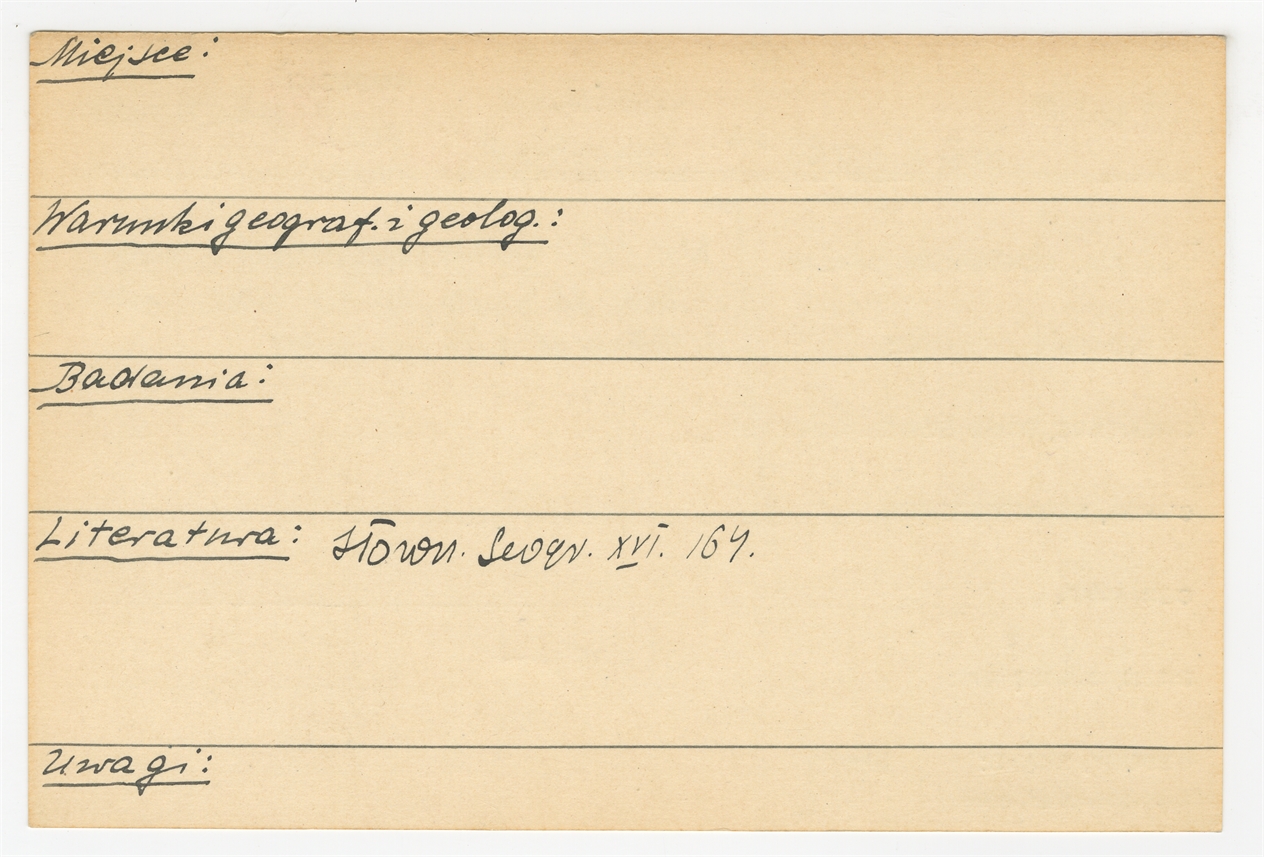 Miejsce:
Warunki geograf. i geolog.:
Badania:
Literatura: Słown. Geogr. XVI. 164.
Uwagi: